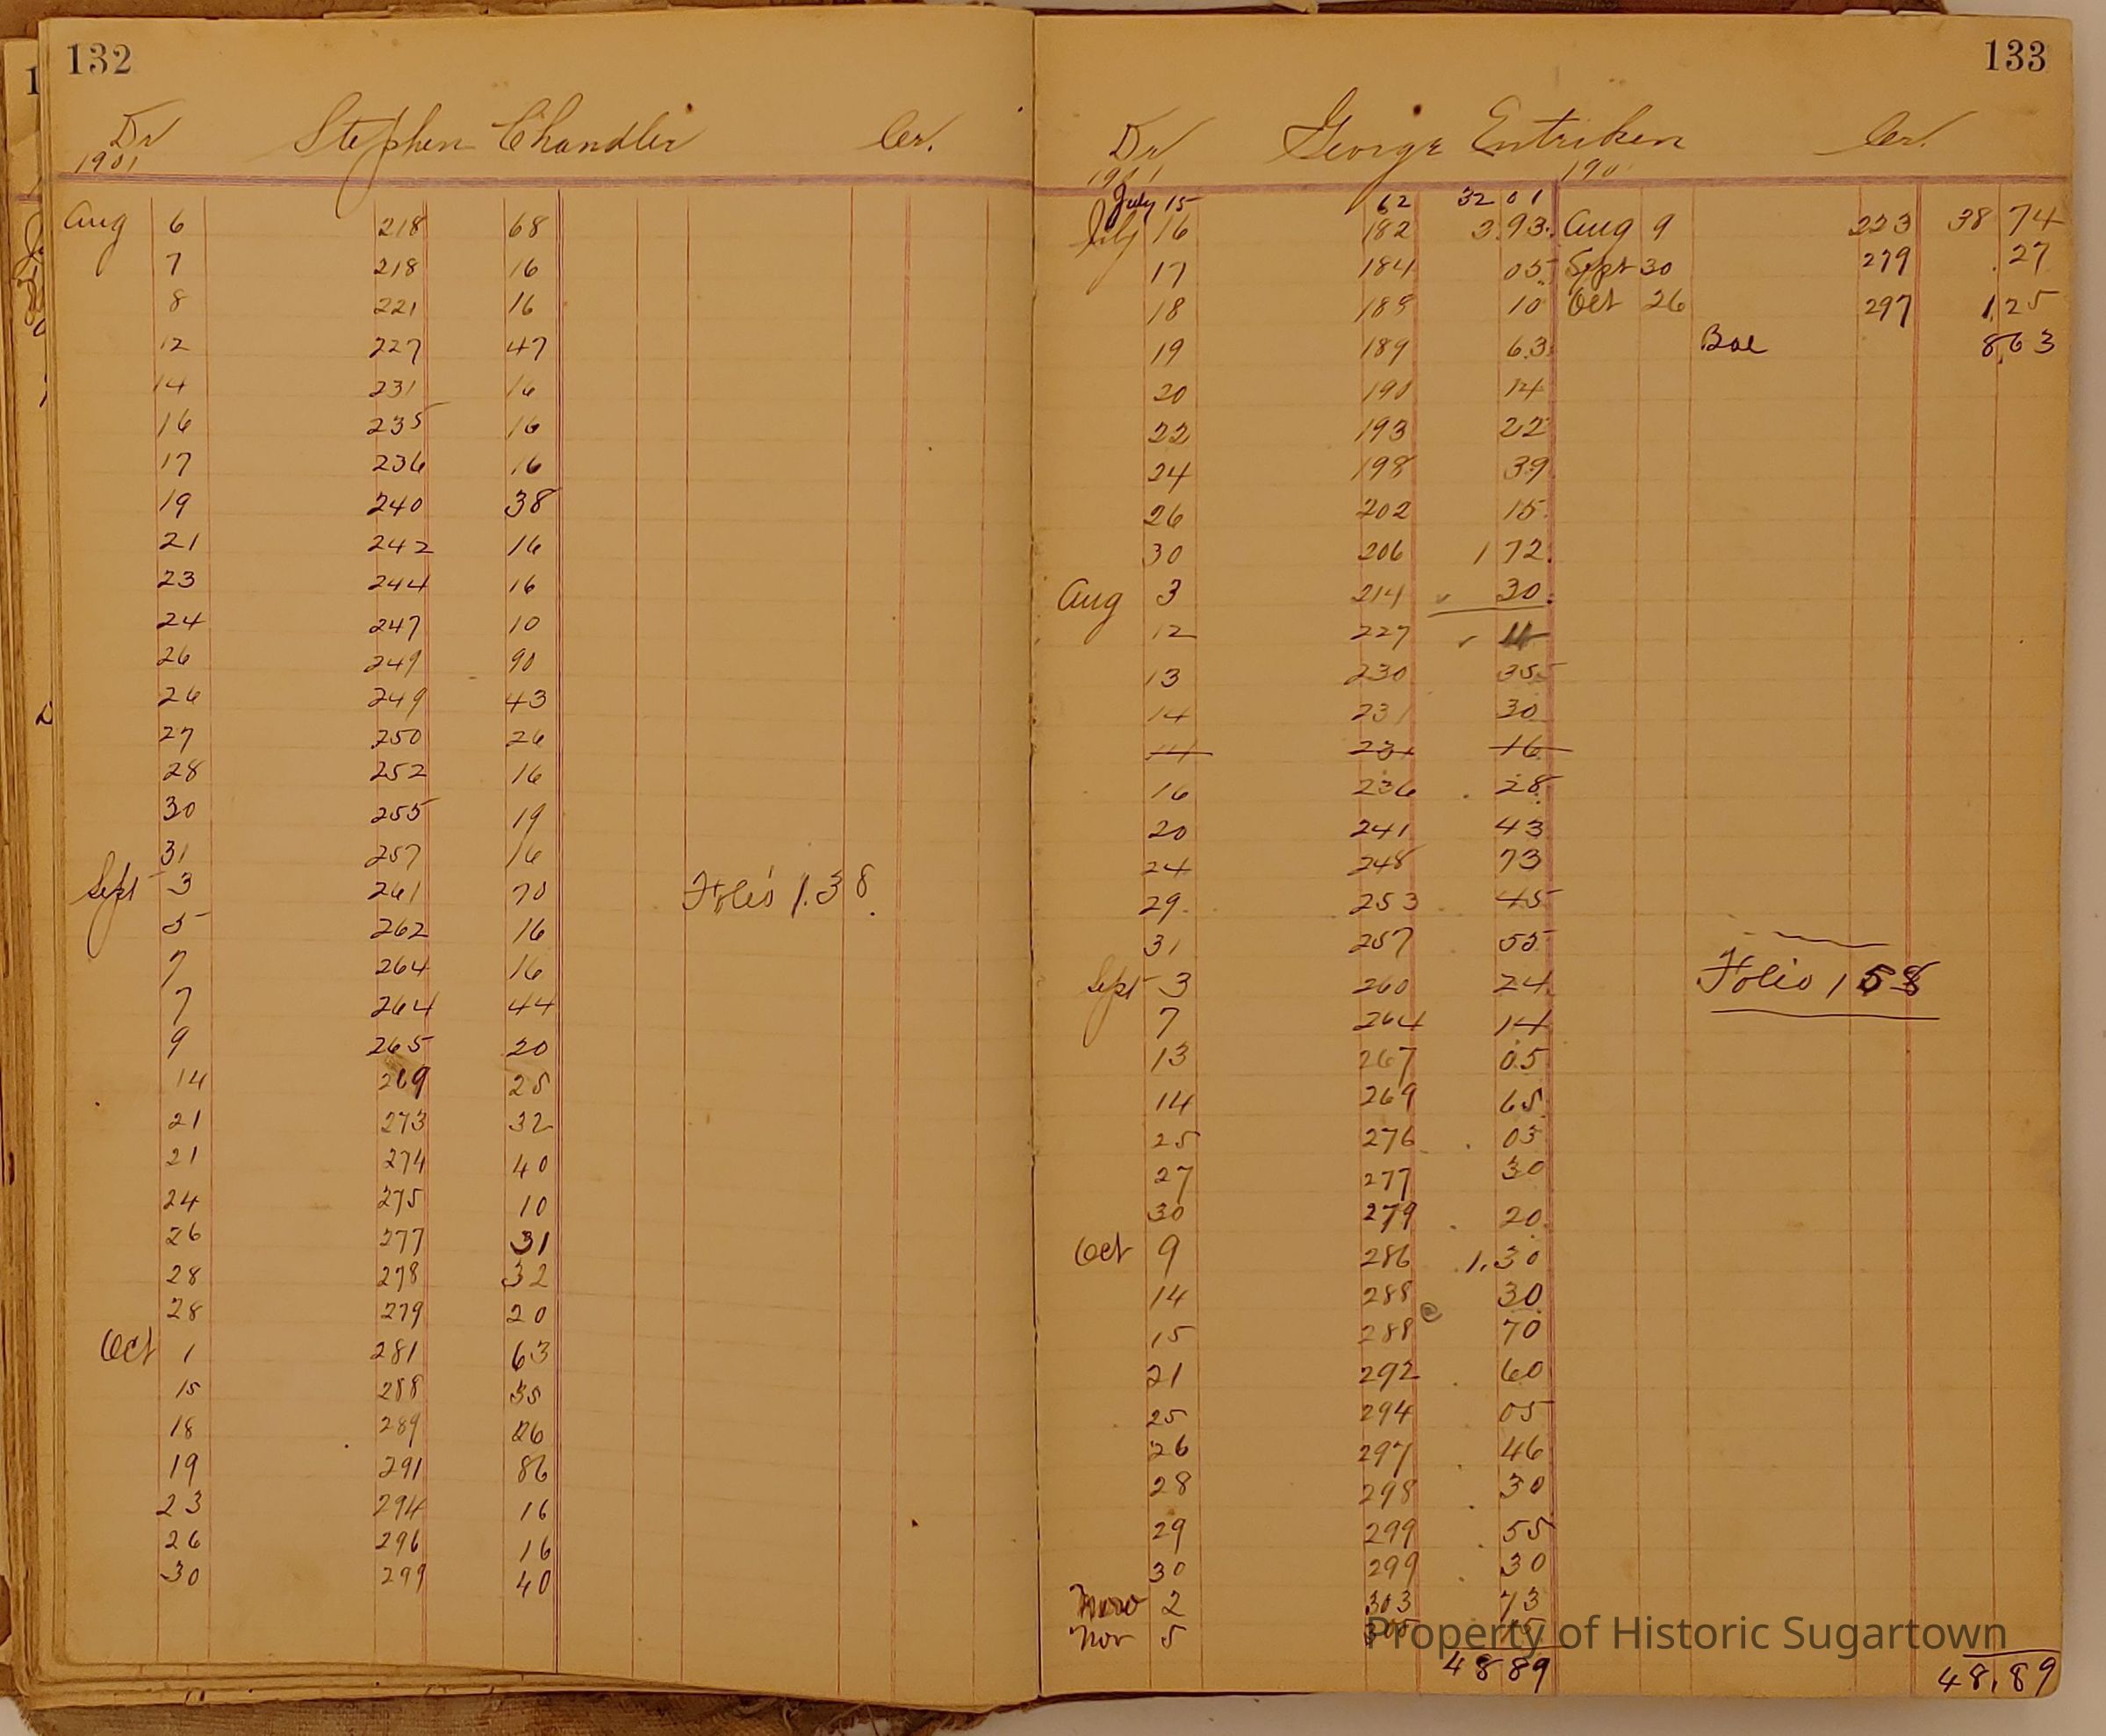 132
Dr Stephen Chandler Cr.
1901
Aug 6 218 68
7 218 16
8 221 16
12 227 47
14 231 16
16 235 16
17 236 16
19 240 38
21 242 16
23 244 16
24 247 10
26 249 90
26 249 43
27 250 26
28 252 16
30 255 19
31 257 16
Sept 3 261 70 Folio 138.
5 262 16
7 264 16
7 264 44
9 265 20
14 269 25
21 273 32
21 274 40
24 275 10
26 277 31
28 278 32
28 279 20
Oct 1 281 63
15 288 35
18 289 26
19 291 86
23 294 16
26 296 16
30 299 40
133
Dr George Entriken Cr.
1901 190
July 15 62 32 01
July 16 182 3.93. Aug 9 223 38 74
17 184 05 Sept 30 279 .27
18 10 Oct 26 297 1,25
19 189 63 Bal 8,63
20 190 14
22 193 22
24 198 39
26 202 15
30 206 1 72.
Aug 3 214 30.
12 227
13 230 35
14 231 30
14 231 16
16 236 . 28
20 241 43
24 248 73
29. 253 45
31 257 55
Sept 3 260 24 Folio 158
7 264 14
13 267 05
14 269 65
25 276 . 05
27 277 30
30 279 . 20
Oct 9 286 1.30
14 288 30
15 70
21 292 . 60
25 294 05
26 297 . 46
28 298 . 30
29 299 . 55
30 299 . 30
2 303 73
Nov 5
4889 48.89
Property of Historic Sugartown